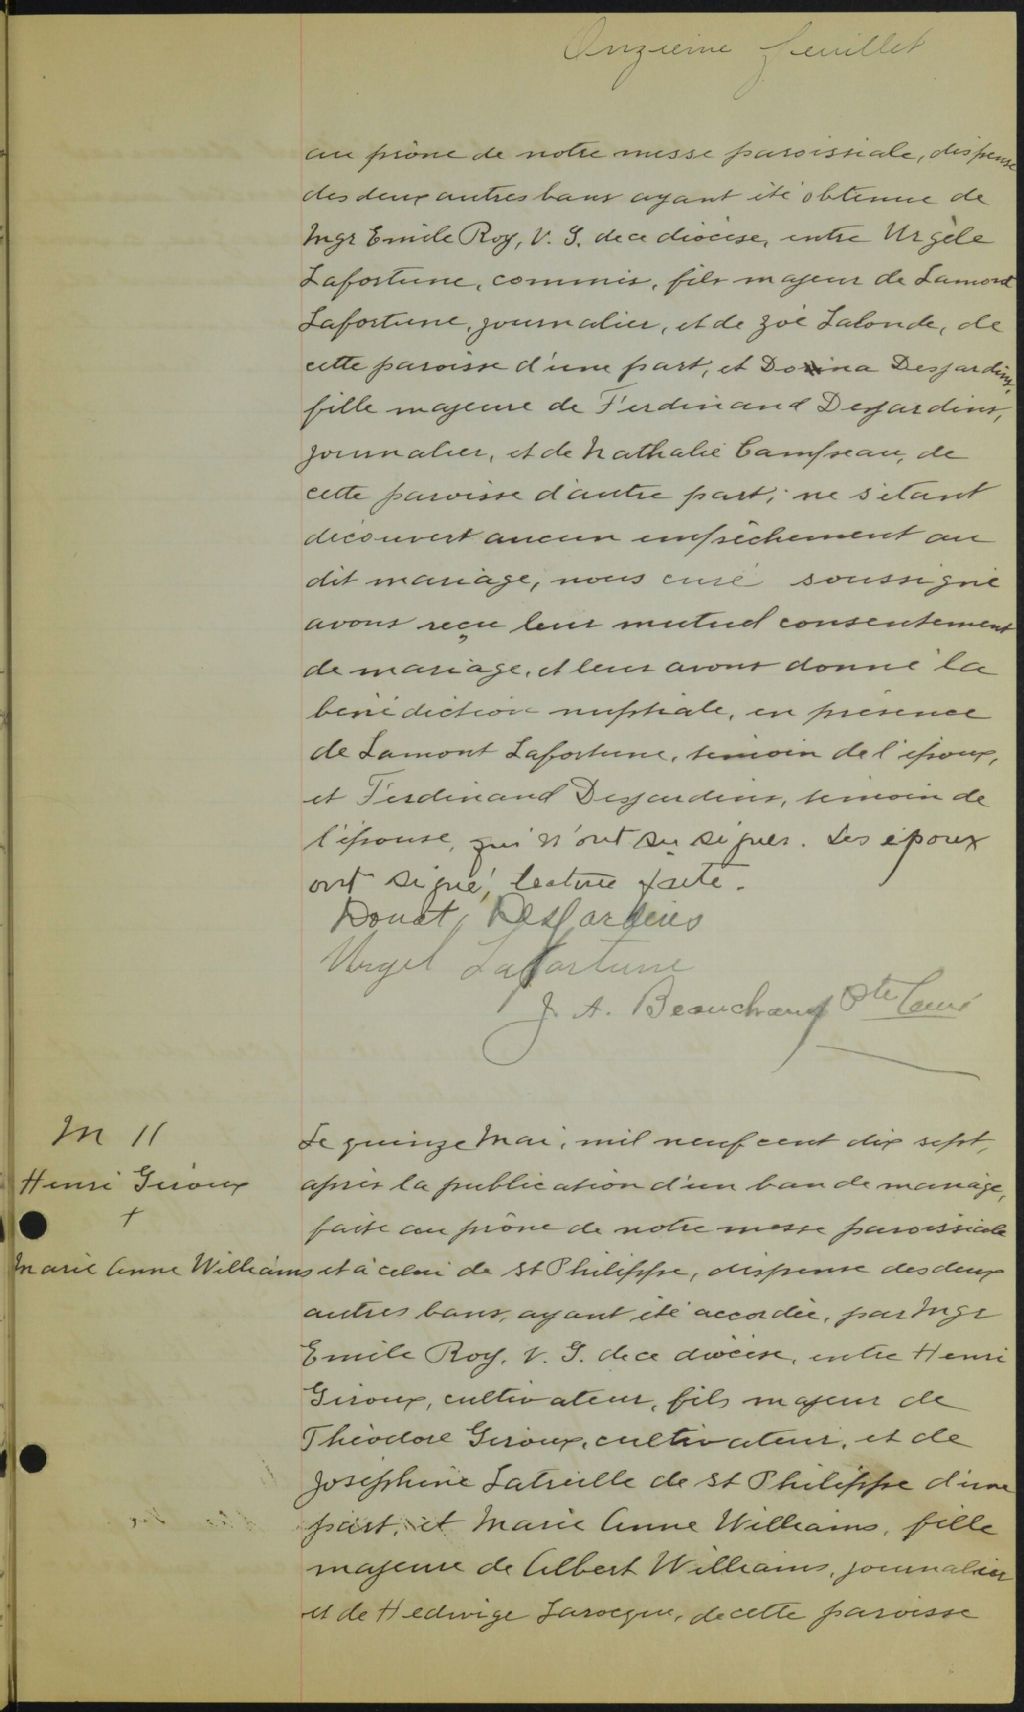 Onzième feuillet
au prône de notre messe paroissiale, dispense
des deux autres bans ayant été obtenue de
Mgr Emile Roy, V. G. de ce diocèse, entre Urgèle
Lafortune, commis, fils majeur de Lamont
Lafortune, journalier, et de Zoé Lalonde, de
cette paroisse d'une part, et Donina Desjardins,
fille majeure de Ferdinand Desjardins,
journalier, et de Nathalie Campeau, de
cette paroisse d'autre part; ne s'étant
découvert aucun empêchement au
dit mariage, nous curé soussigné
avons reçu leur mutuel consentement
de mariage, et leur avons donné la
bénédiction nuptiale, en présence
de Lamont Lafortune, témoin de l'époux,
et Ferdinand Desjardins, témoin de
l'épouse, qui n'ont su signer. Les époux
ont signé, lecture faite.
Desjardins
Urgel Lafortune
J. A. Beauchamp Ptre Curé
M 11
Henri Giroux
+
Marie Anne Williams
Le quinze Mai, mil neuf cent dix sept,
après la publication d'un ban de mariage,
faite au prône de notre messe paroissiale
et à celui de St Philippe, dispense des deux
autres bans, ayant été accordée, par Mgr
Emile Roy, V. G. de ce diocèse, entre Henri
Giroux, cultivateur, fils majeur de
Théodore Giroux, cultivateur, et de
Joséphine Latreille de St Philippe d'une
part, et Marie Anne Williams, fille
majeure de Albert Williams, journalier
et de Hedwige Larocque, de cette paroisse